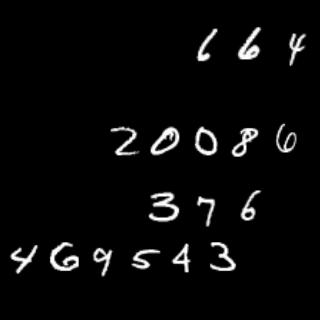 664
20086
376
469543